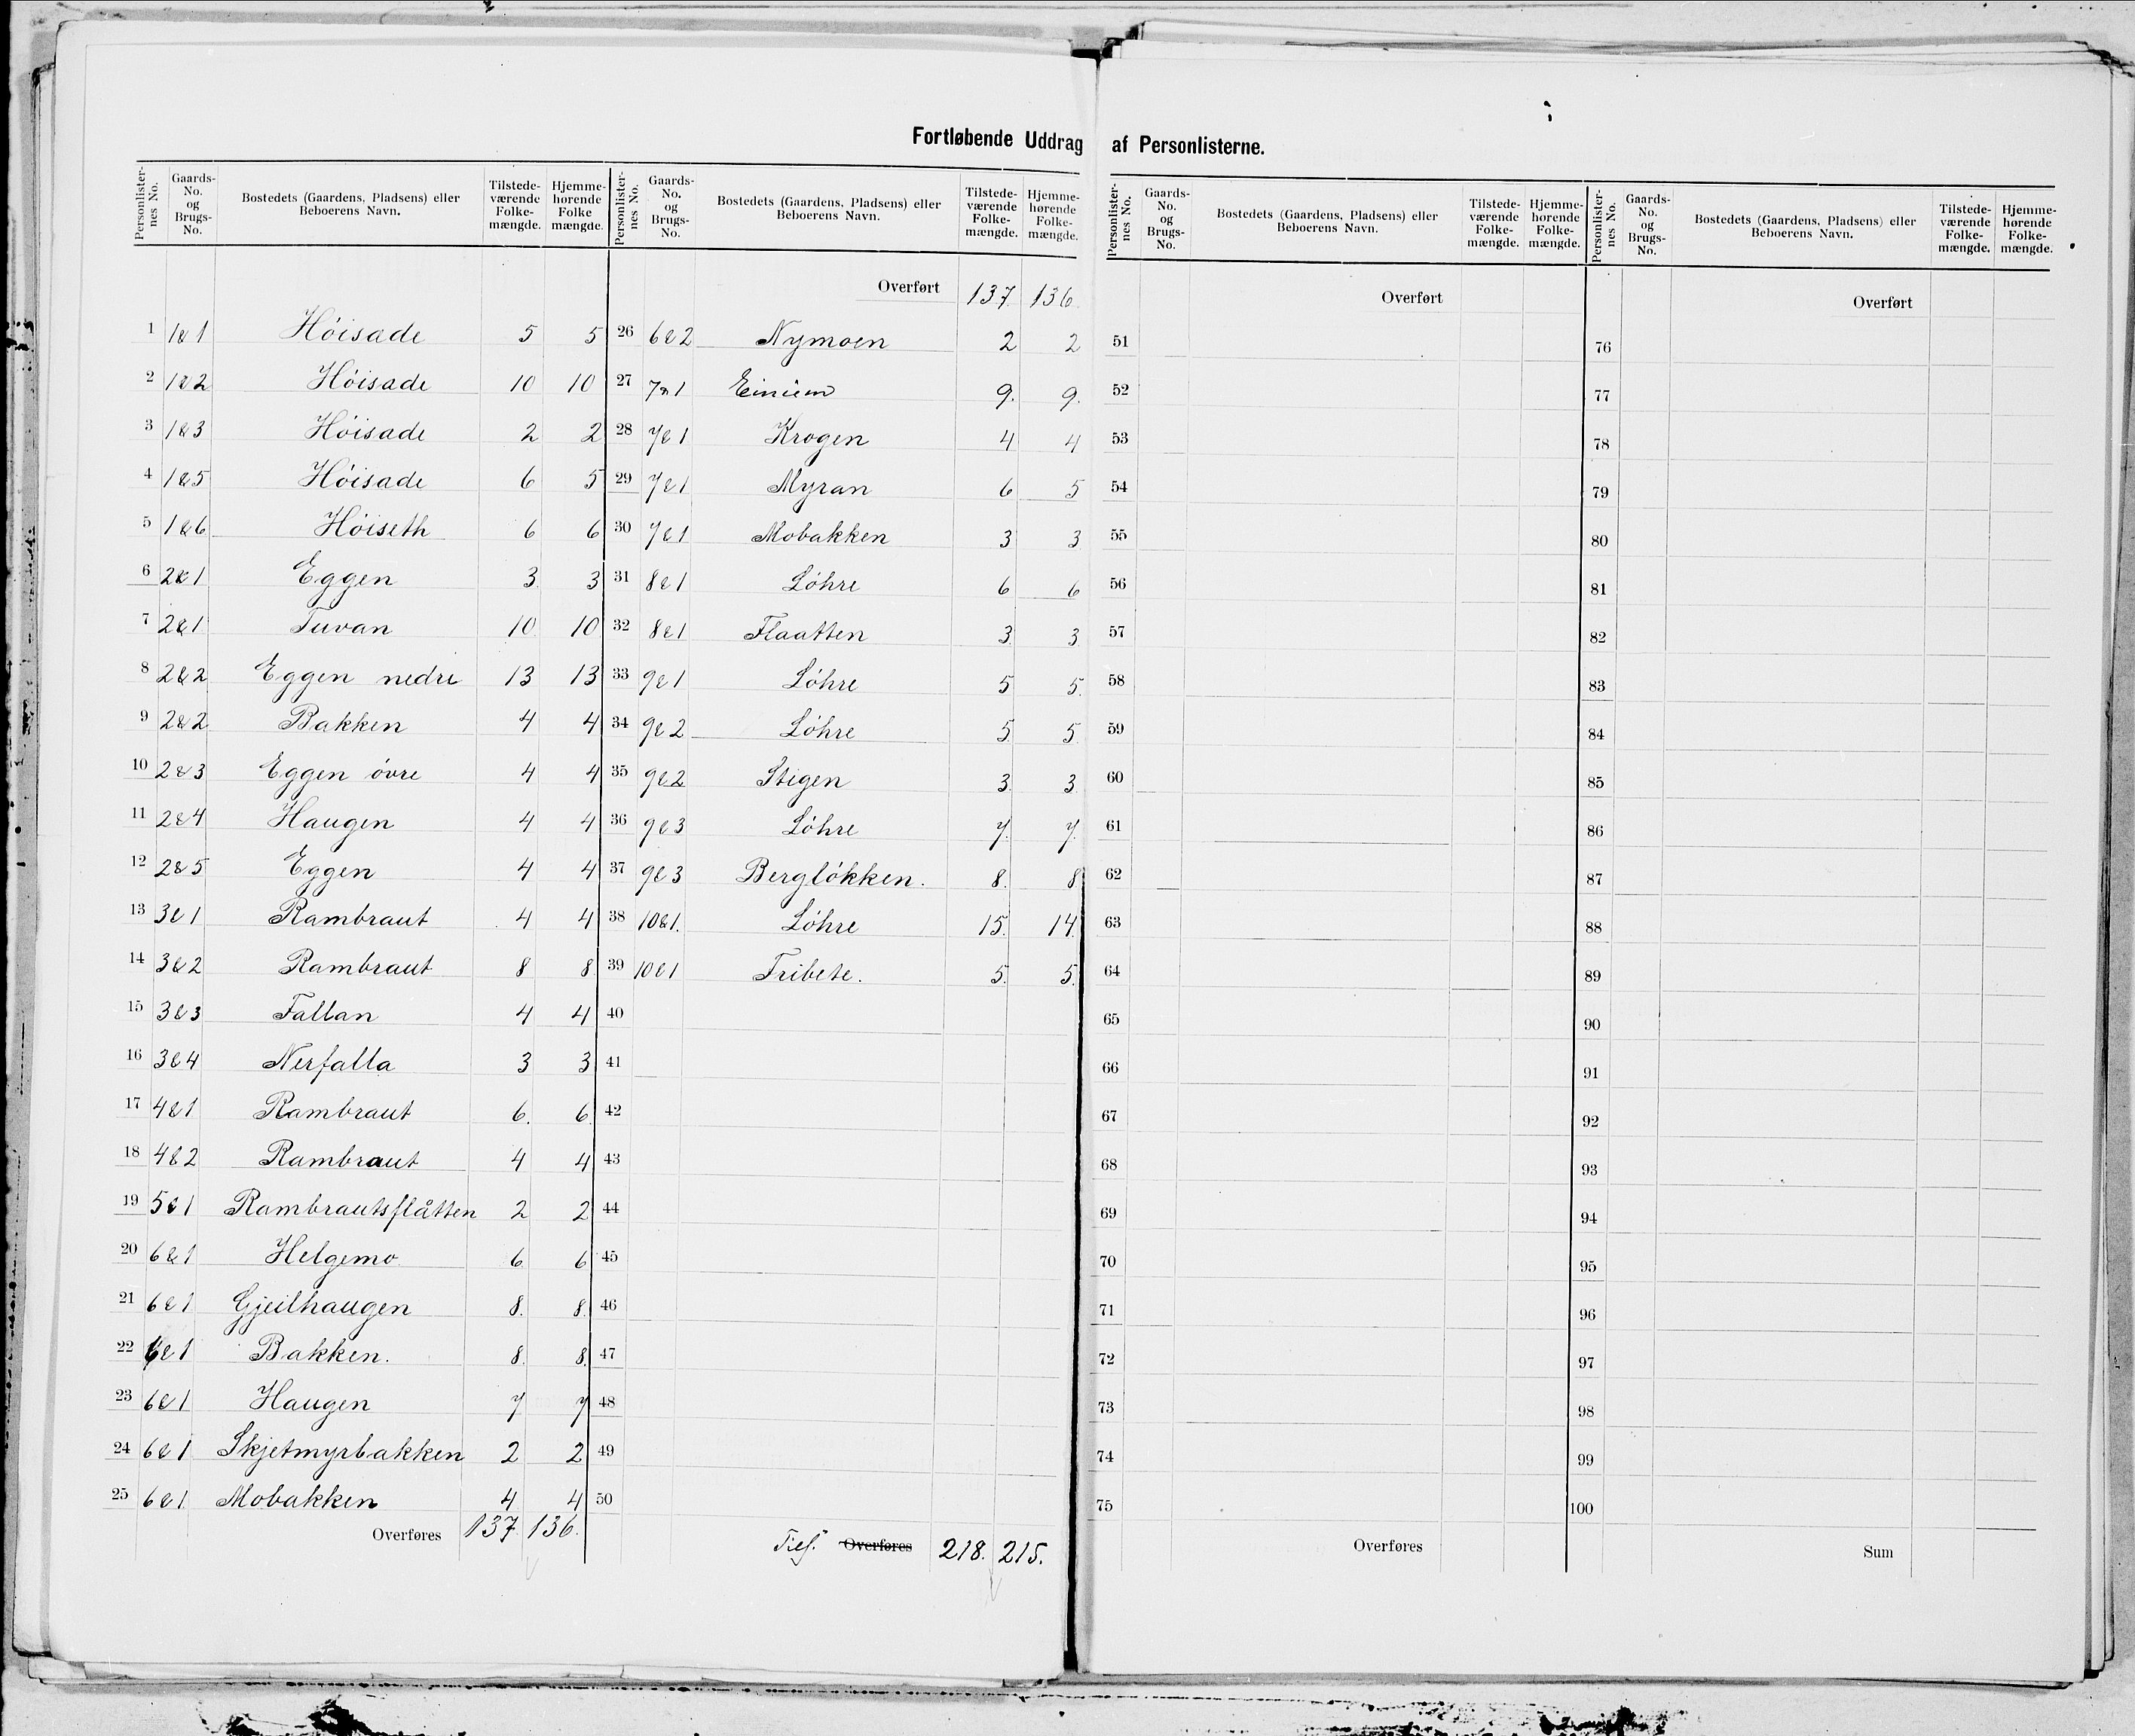 Fortløbende Uddrag af Personlisterne.
Personlister-nes No. | Gaards-No. og Brugs-No. | Bostedets (Gaardens, Pladsens) eller Beboerens Navn. | Tilstede-værende Folke-mængde. | Hjemme-hørende Folke mængde.
1 1&1 Höisade 5 5
2 1&2 Höisade 10 10
3 1&3 Höisade 2 2
4 1&5 Höisade 6 5
5 1&6 Höiseth 6 6
6 2&1 Eggen 3 3
7 2&1 Tuvan 10 10
8 2&2 Eggen nedre 13 13
9 2&2 Bakken 4 4
10 2&3 Eggen övre 4 4
11 2&4 Haugen 4 4
12 2&5 Eggen 4 4
13 3&1 Rambraut 4 4
14 3&2 Rambraut 8 8
15 3&3 Fallan 4 4
16 3&4 Nerfalla 3 3
17 4&1 Rambraut 6. 6
18 4&2 Rambraut 4 4
19 5&1 Rambrautsflåtten 2 2
20 6&1 Helgemo 6 6
21 6&1 Gjeilhaugen 8. 8.
22 6&1 Bakken. 8. 8.
23 6&1 Haugen 7 7
24 6&1 Skjetmyrbakken 2 2
25 6&1 Mobakken 4 4
Overføres 137 136.
Personlister-nes No. | Gaards-No. og Brugs-No. | Bostedets (Gaardens, Pladsens) eller Beboerens Navn. | Tilstede-værende Folke-mængde. | Hjemme-hørende Folke-mængde.
Overført 137 136
26 6&2 Nymoen 2 2
27 7&1 Einum 9. 9.
28 7&1 Krogen 4 4
29 7&1 Myran 6 5
30 7&1 Mobakken 3 3
31 8&1 Löhre 6 6
32 8&1 Flaatten 3 3
33 9&1 Löhre 5 5.
34 9&2 Löhre 5 5
35 9&2 Stigen 3 3
36 9&3 Löhre 7. 7.
37 9&3 Berglökken. 8. 8
38 10&1. Löhre 15. 14.
39 10&1 Tribete. 5. 5.
40
41
42
43
44
45
46
47
48
49
50
Overføres 218. 215.
Personlister-nes No. | Gaards-No. og Brugs-No. | Bostedets (Gaardens, Pladsens) eller Beboerens Navn. | Tilstede-værende Folke-mængde. | Hjemme-hørende Folke-mængde.
Overført
51
52
53
54
55
56
57
58
59
60
61
62
63
64
65
66
67
68
69
70
71
72
73
74
75
Overføres
Personlister-nes No. | Gaards-No. og Brugs-No. | Bostedets (Gaardens, Pladsens) eller Beboerens Navn. | Tilstede-værende Folke-mængde. | Hjemme-hørende Folke-mængde.
Overført
76
77
78
79
80
81
82
83
84
85
86
87
88
89
90
91
92
93
94
95
96
97
98
99
100
Sum